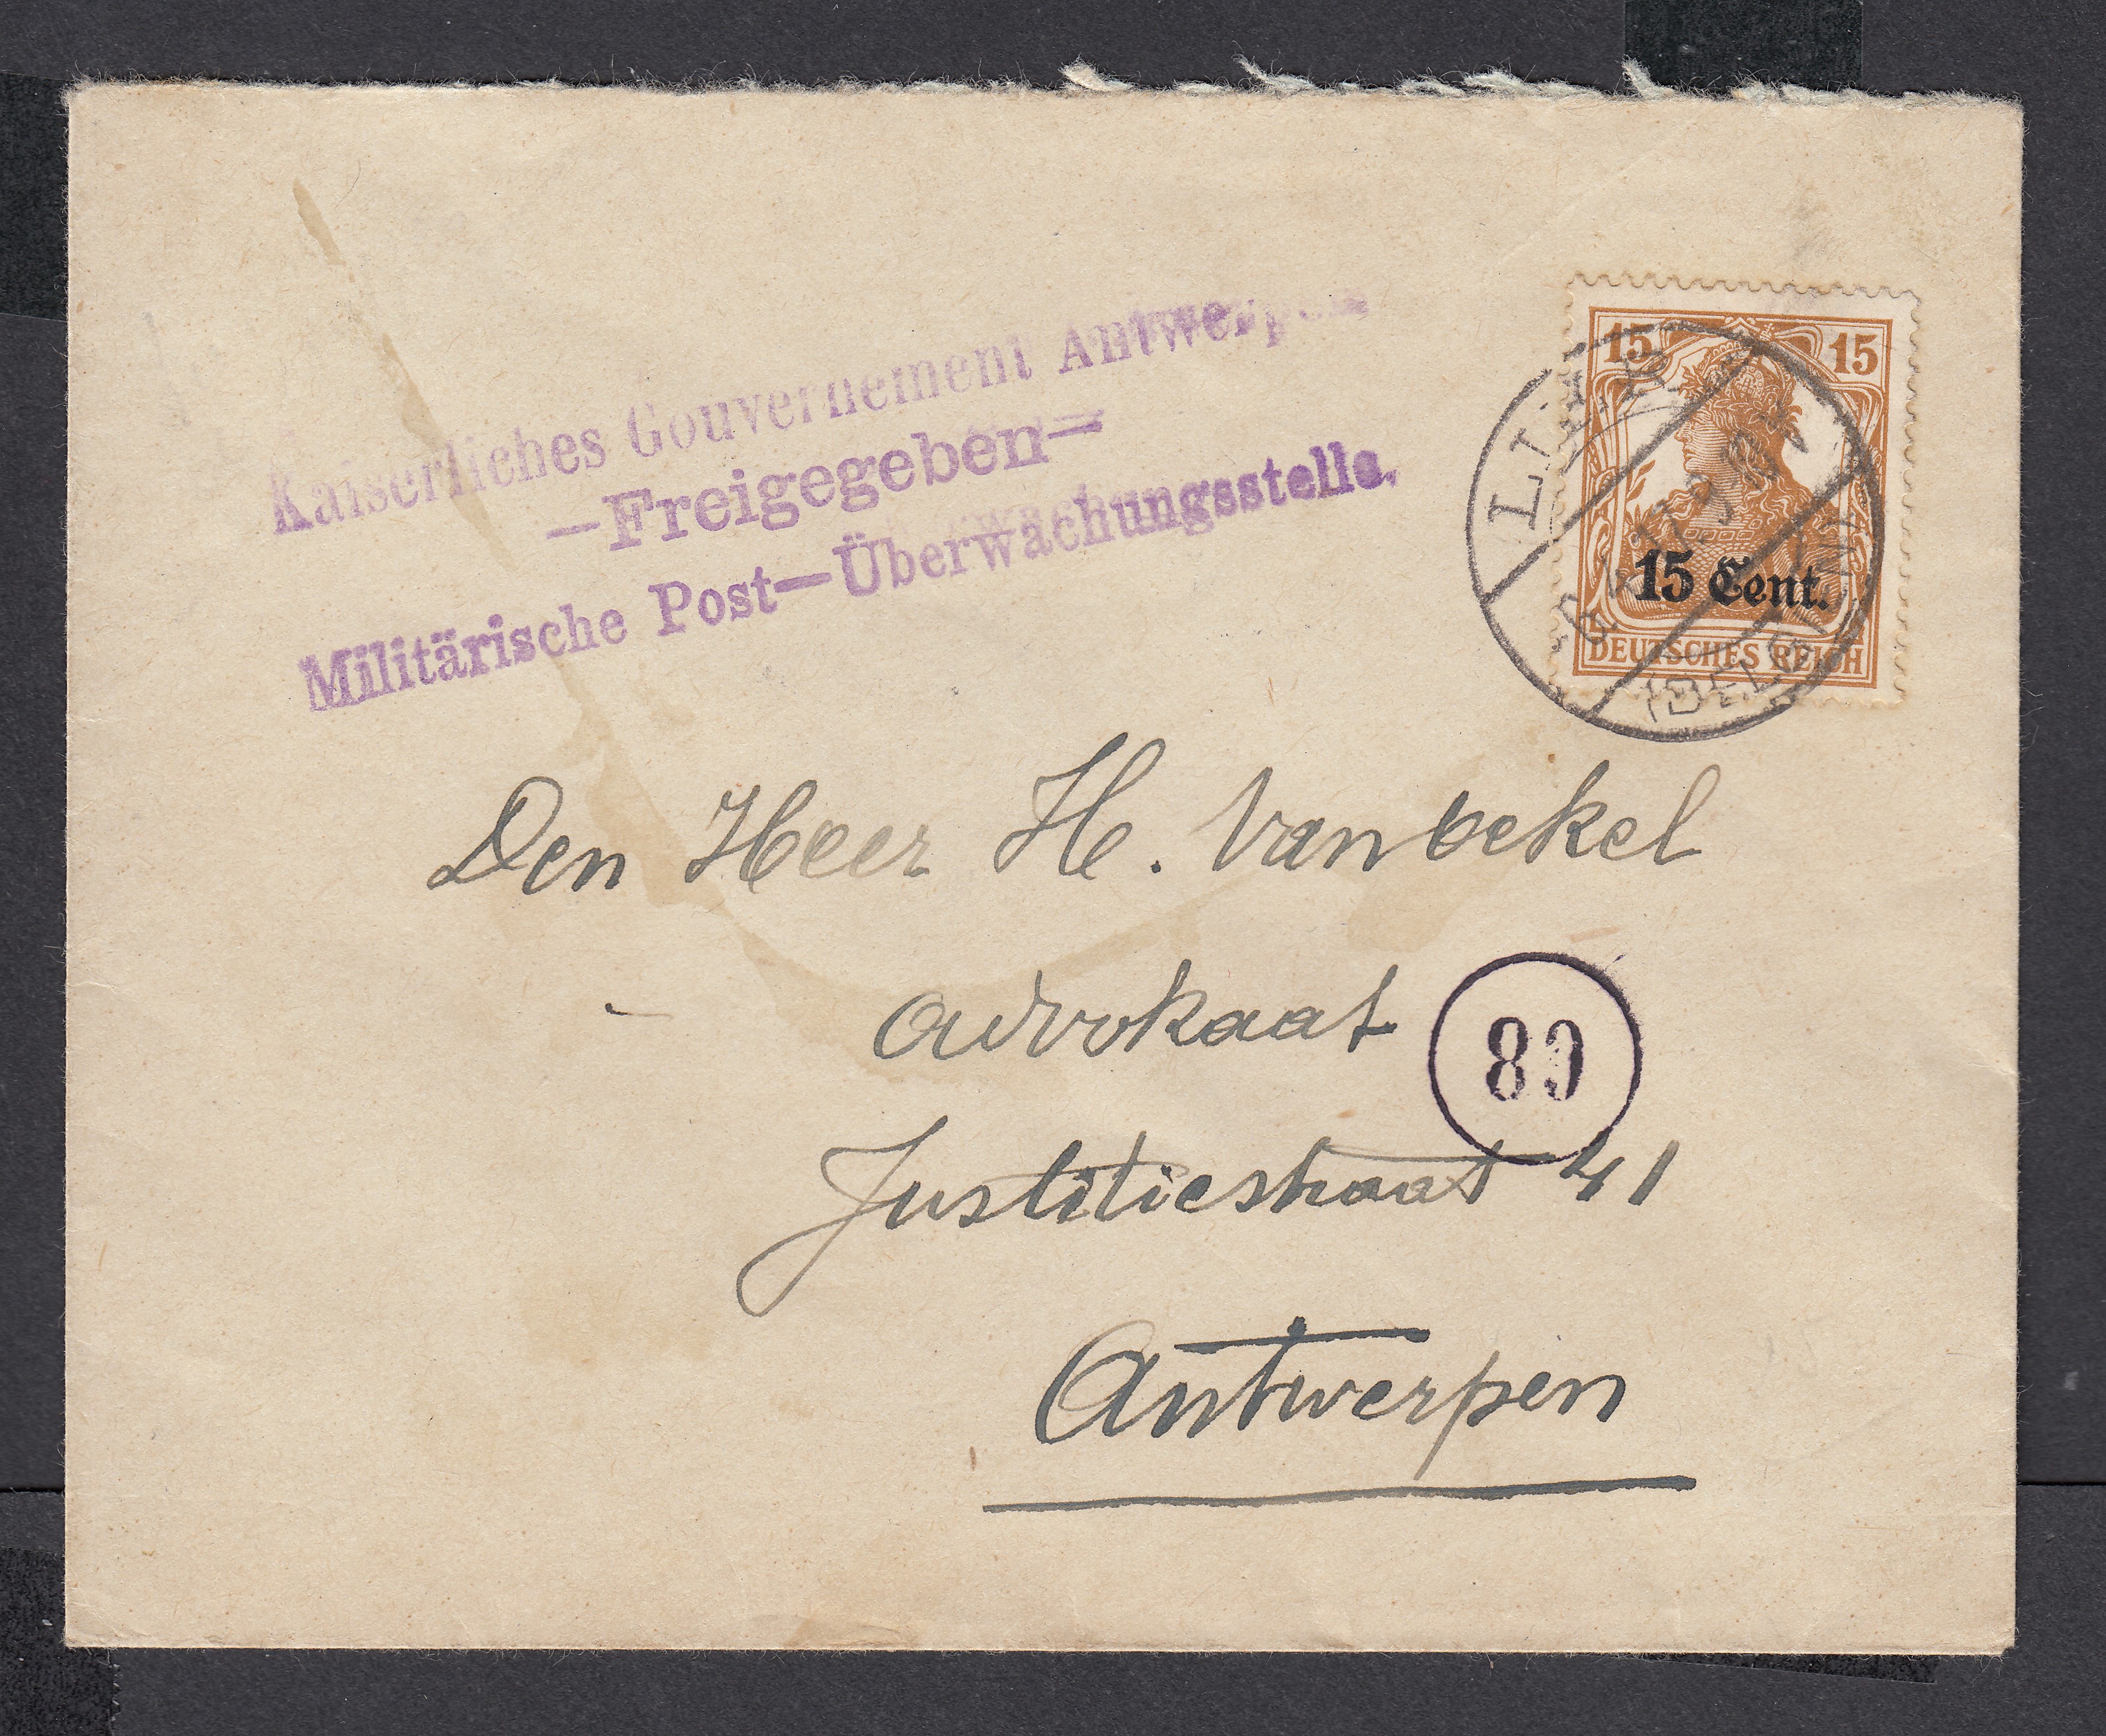 Kaiserliches Gouvernement Antwerpen
—Freigegeben—
Militärische Post—Überwachungsstelle.
15 15
15 Cent.
DEUTSCHES REICH
LIER
(BELGIEN)
Den Heer H. Vanbekel
advokaat
89
Justitiestraat 41
Antwerpen